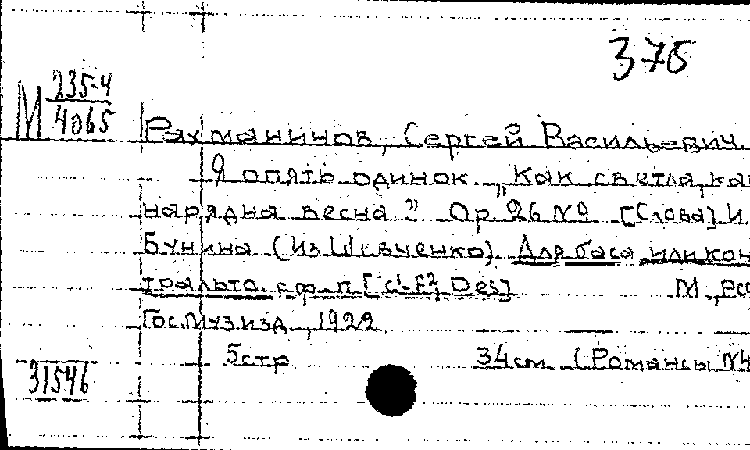 375
М 235-4
4065
Рахманинов, Сергей Васильевич.
Я опять одинок. "Как светла, как
нарядна весна" Op. 26 №9 [Слова] И.
Бунина (Из Шевченко). Для баса или кон
тральто с ф-п [c¹-f²; Des]
М., РСФ
Гос. Муз. изд., 1922
5 стр 34 см (Романсы №4
31546